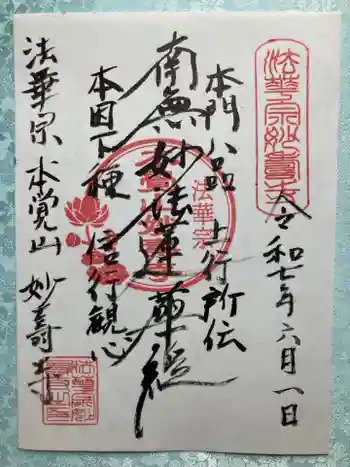 法華宗妙壽寺
令和七年六月一日
本門八品上行所伝
南無妙法蓮華経
本因下種信行観心
法華宗本覚山妙寿寺
法華宗